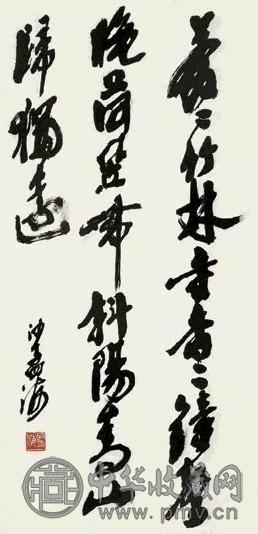 蒼〻竹林寺杳〻鐘聲
晚荷笠帶斜陽青山
歸獨遠
沙孟海
中华收藏网
www.pmv.cn